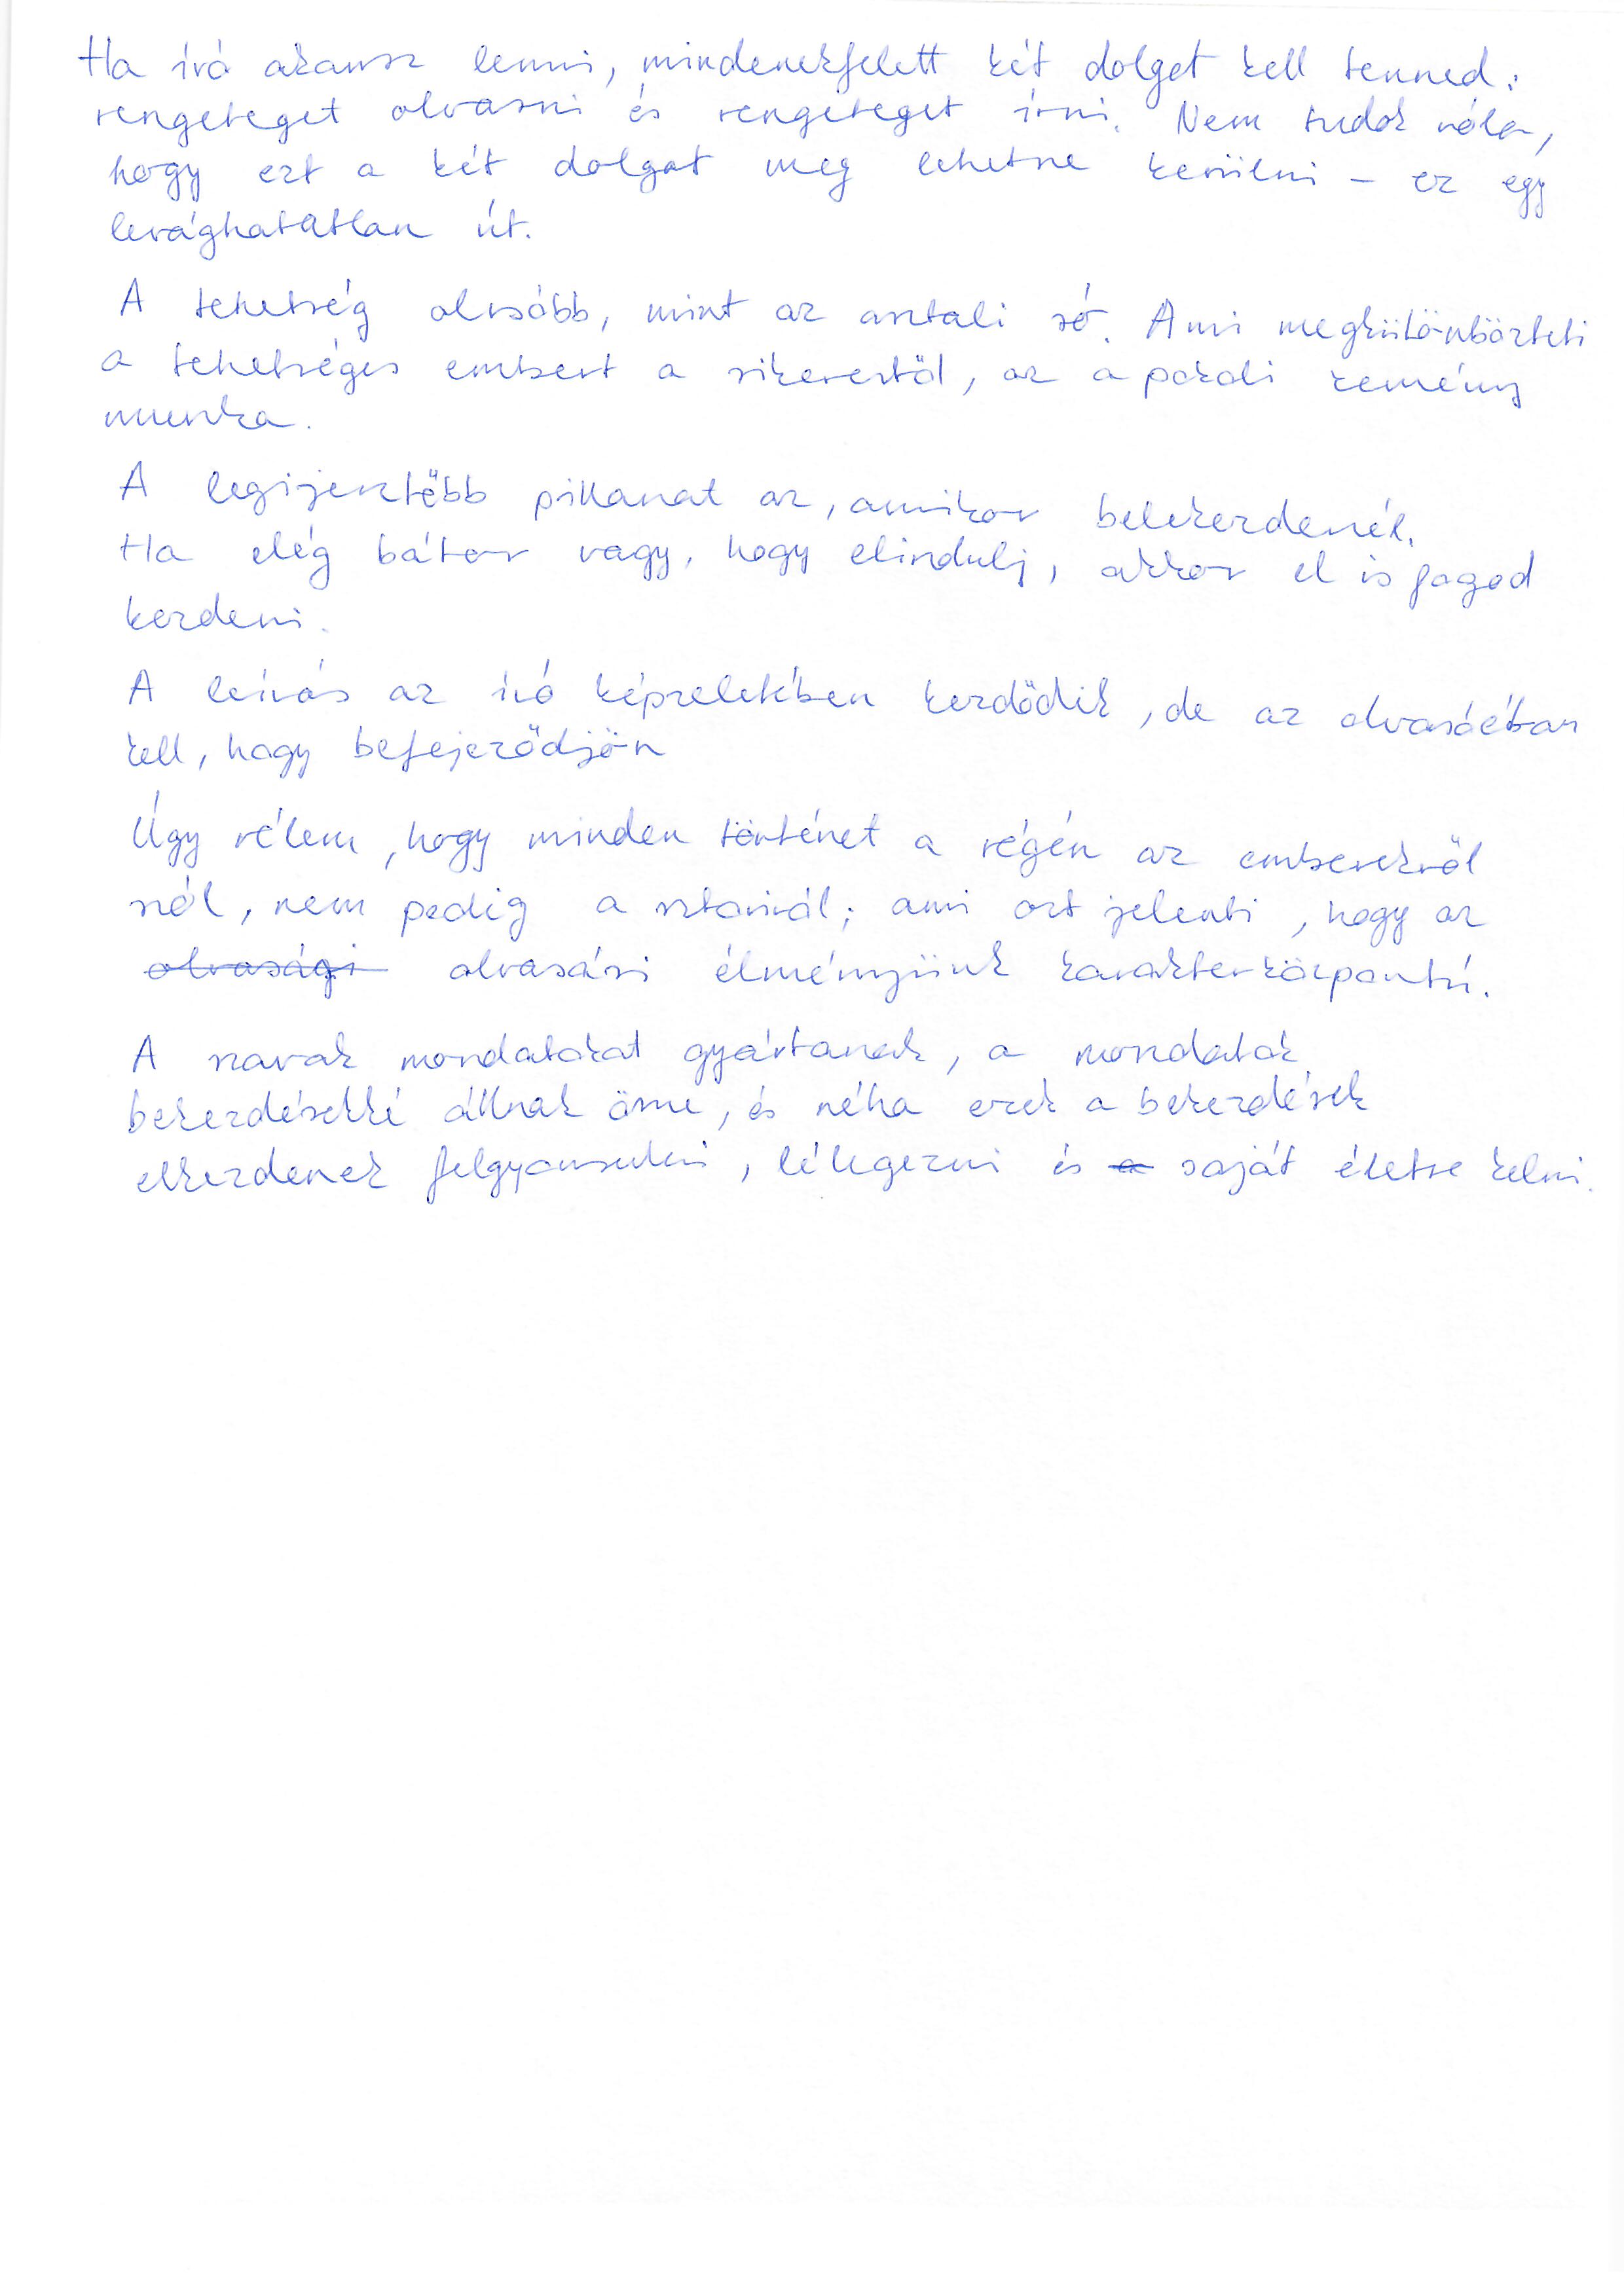 Ha író akarsz lenni, mindenekfelett két dolgot kell tenned:
rengeteget olvasni és rengeteget írni. Nem tudok róla,
hogy ezt a két dolgot meg lehetne kerülni – ez egy
levághatatlan út.
A tehetség olcsóbb, mint az asztali só. Ami megkülönbözteti
a tehetséges embert a sikerestől, az a pokoli kemény
munka.
A legijesztőbb pillanat az, amikor belekezdenél.
Ha elég bátor vagy, hogy elindulj, akkor el is fogod
kezdeni.
A leírás az író képzeletében kezdődik, de az olvasóéban
kell, hogy befejeződjön
Úgy vélem, hogy minden történet a végén az emberekről
szól, nem pedig a sztoriról; ami azt jelenti, hogy az
olvasági olvasási élményünk karakterközpontú.
A szavak mondatokat gyártanak, a mondatok
bekezdésekké állnak össze, és néha ezek a bekezdések
elkezdenek felgyorsulni, lélegezni és a saját életre kelni.